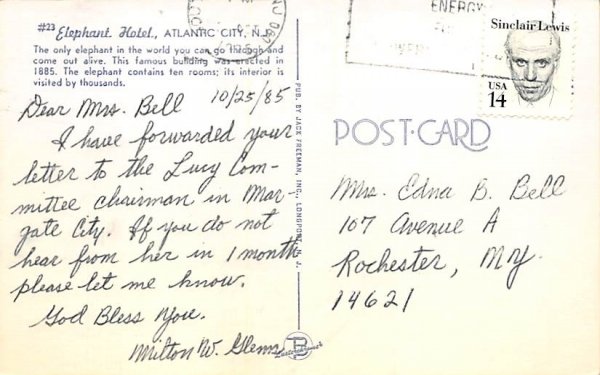 #23 Elephant Hotel, ATLANTIC CITY, N.J.
The only elephant in the world you can go through and
come out alive. This famous building was erected in
1885. The elephant contains ten rooms; its interior is
visited by thousands.
Dear Mrs. Bell 10/25/85
I have forwarded your
letter to the Lucy Com-
mittee chairman in Mar
gate City. If you do not
hear from her in 1 month
please let me know.
God Bless You.
Milton W. Glenn
PUB. BY JACK FREEMAN, INC., LONGPORT, N. J.
ENERGY
Sinclair Lewis
USA
14
POST-CARD
Mrs. Edna B. Bell
107 Avenue A
Rochester, N.Y.
14621